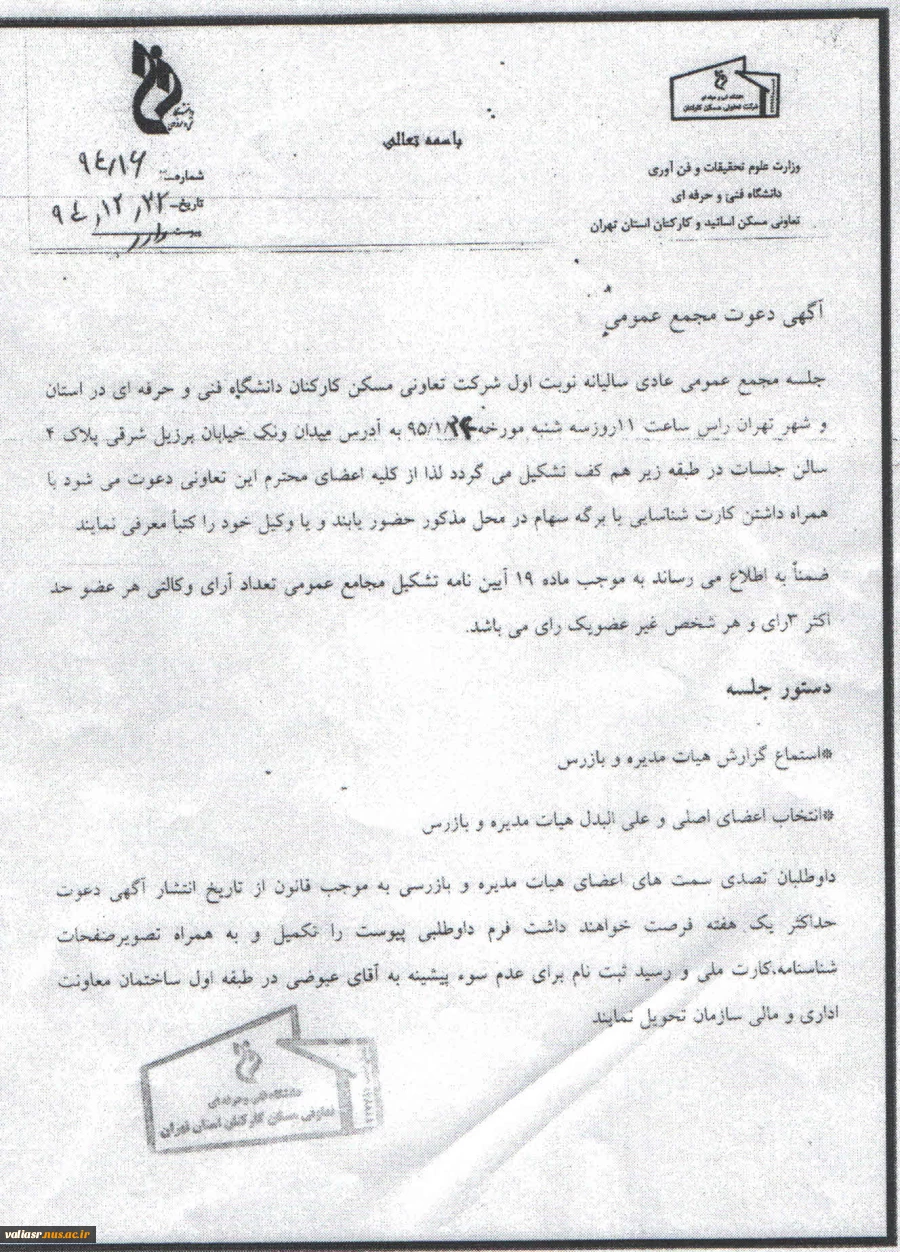 باسمه تعالی
وزارت علوم تحقیقات و فن آوری
دانشگاه فنی و حرفه ای
تعاونی مسکن اساتید و کارکنان استان تهران
شماره ۹۴/۱۶
تاریخ ۹۴,۱۲,۲۲
پیوست دارد
آگهی دعوت مجمع عمومی
جلسه مجمع عمومی عادی سالیانه نوبت اول شرکت تعاونی مسکن کارکنان دانشگاه فنی و حرفه ای در استان
و شهر تهران راس ساعت ۱۱روزسه شنبه مورخه ۹۵/۱/۲۴ به آدرس میدان ونک خیابان برزیل شرقی پلاک ۴
سالن جلسات در طبقه زیر هم کف تشکیل می گردد لذا از کلیه اعضای محترم این تعاونی دعوت می شود با
همراه داشتن کارت شناسایی یا برگه سهام در محل مذکور حضور یابند و یا وکیل خود را کتباً معرفی نمایند
ضمناً به اطلاع می رساند به موجب ماده ۱۹ آیین نامه تشکیل مجامع عمومی تعداد آرای وکالتی هر عضو حد
اکثر ۳رای و هر شخص غیر عضویک رای می باشد.
دستور جلسه
*استماع گزارش هیات مدیره و بازرس
*انتخاب اعضای اصلی و علی البدل هیات مدیره و بازرس
داوطلبان تصدی سمت های اعضای هیات مدیره و بازرسی به موجب قانون از تاریخ انتشار آگهی دعوت
حداکثر یک هفته فرصت خواهند داشت فرم داوطلبی پیوست را تکمیل و به همراه تصویرصفحات
شناسنامه،کارت ملی و رسید ثبت نام برای عدم سوء پیشینه به آقای عبوضی در طبقه اول ساختمان معاونت
اداری و مالی سازمان تحویل نمایند
دانشگاه فنی و حرفه ای
تعاونی مسکن کارکنان استان تهران
valiasr.nus.ac.ir